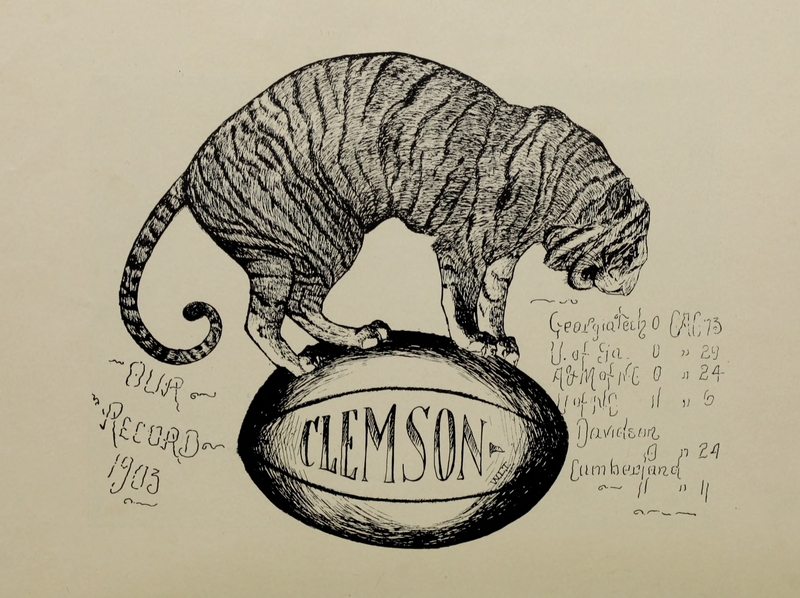 CLEMSON
OUR
RECORD
1903
Georgia Tech 0 CAC 73
U. of Ga. 0 " 29
A&M of NC 0 " 24
U of NC 11 " 6
Davidson
0 " 24
Cumberland
11 " 11